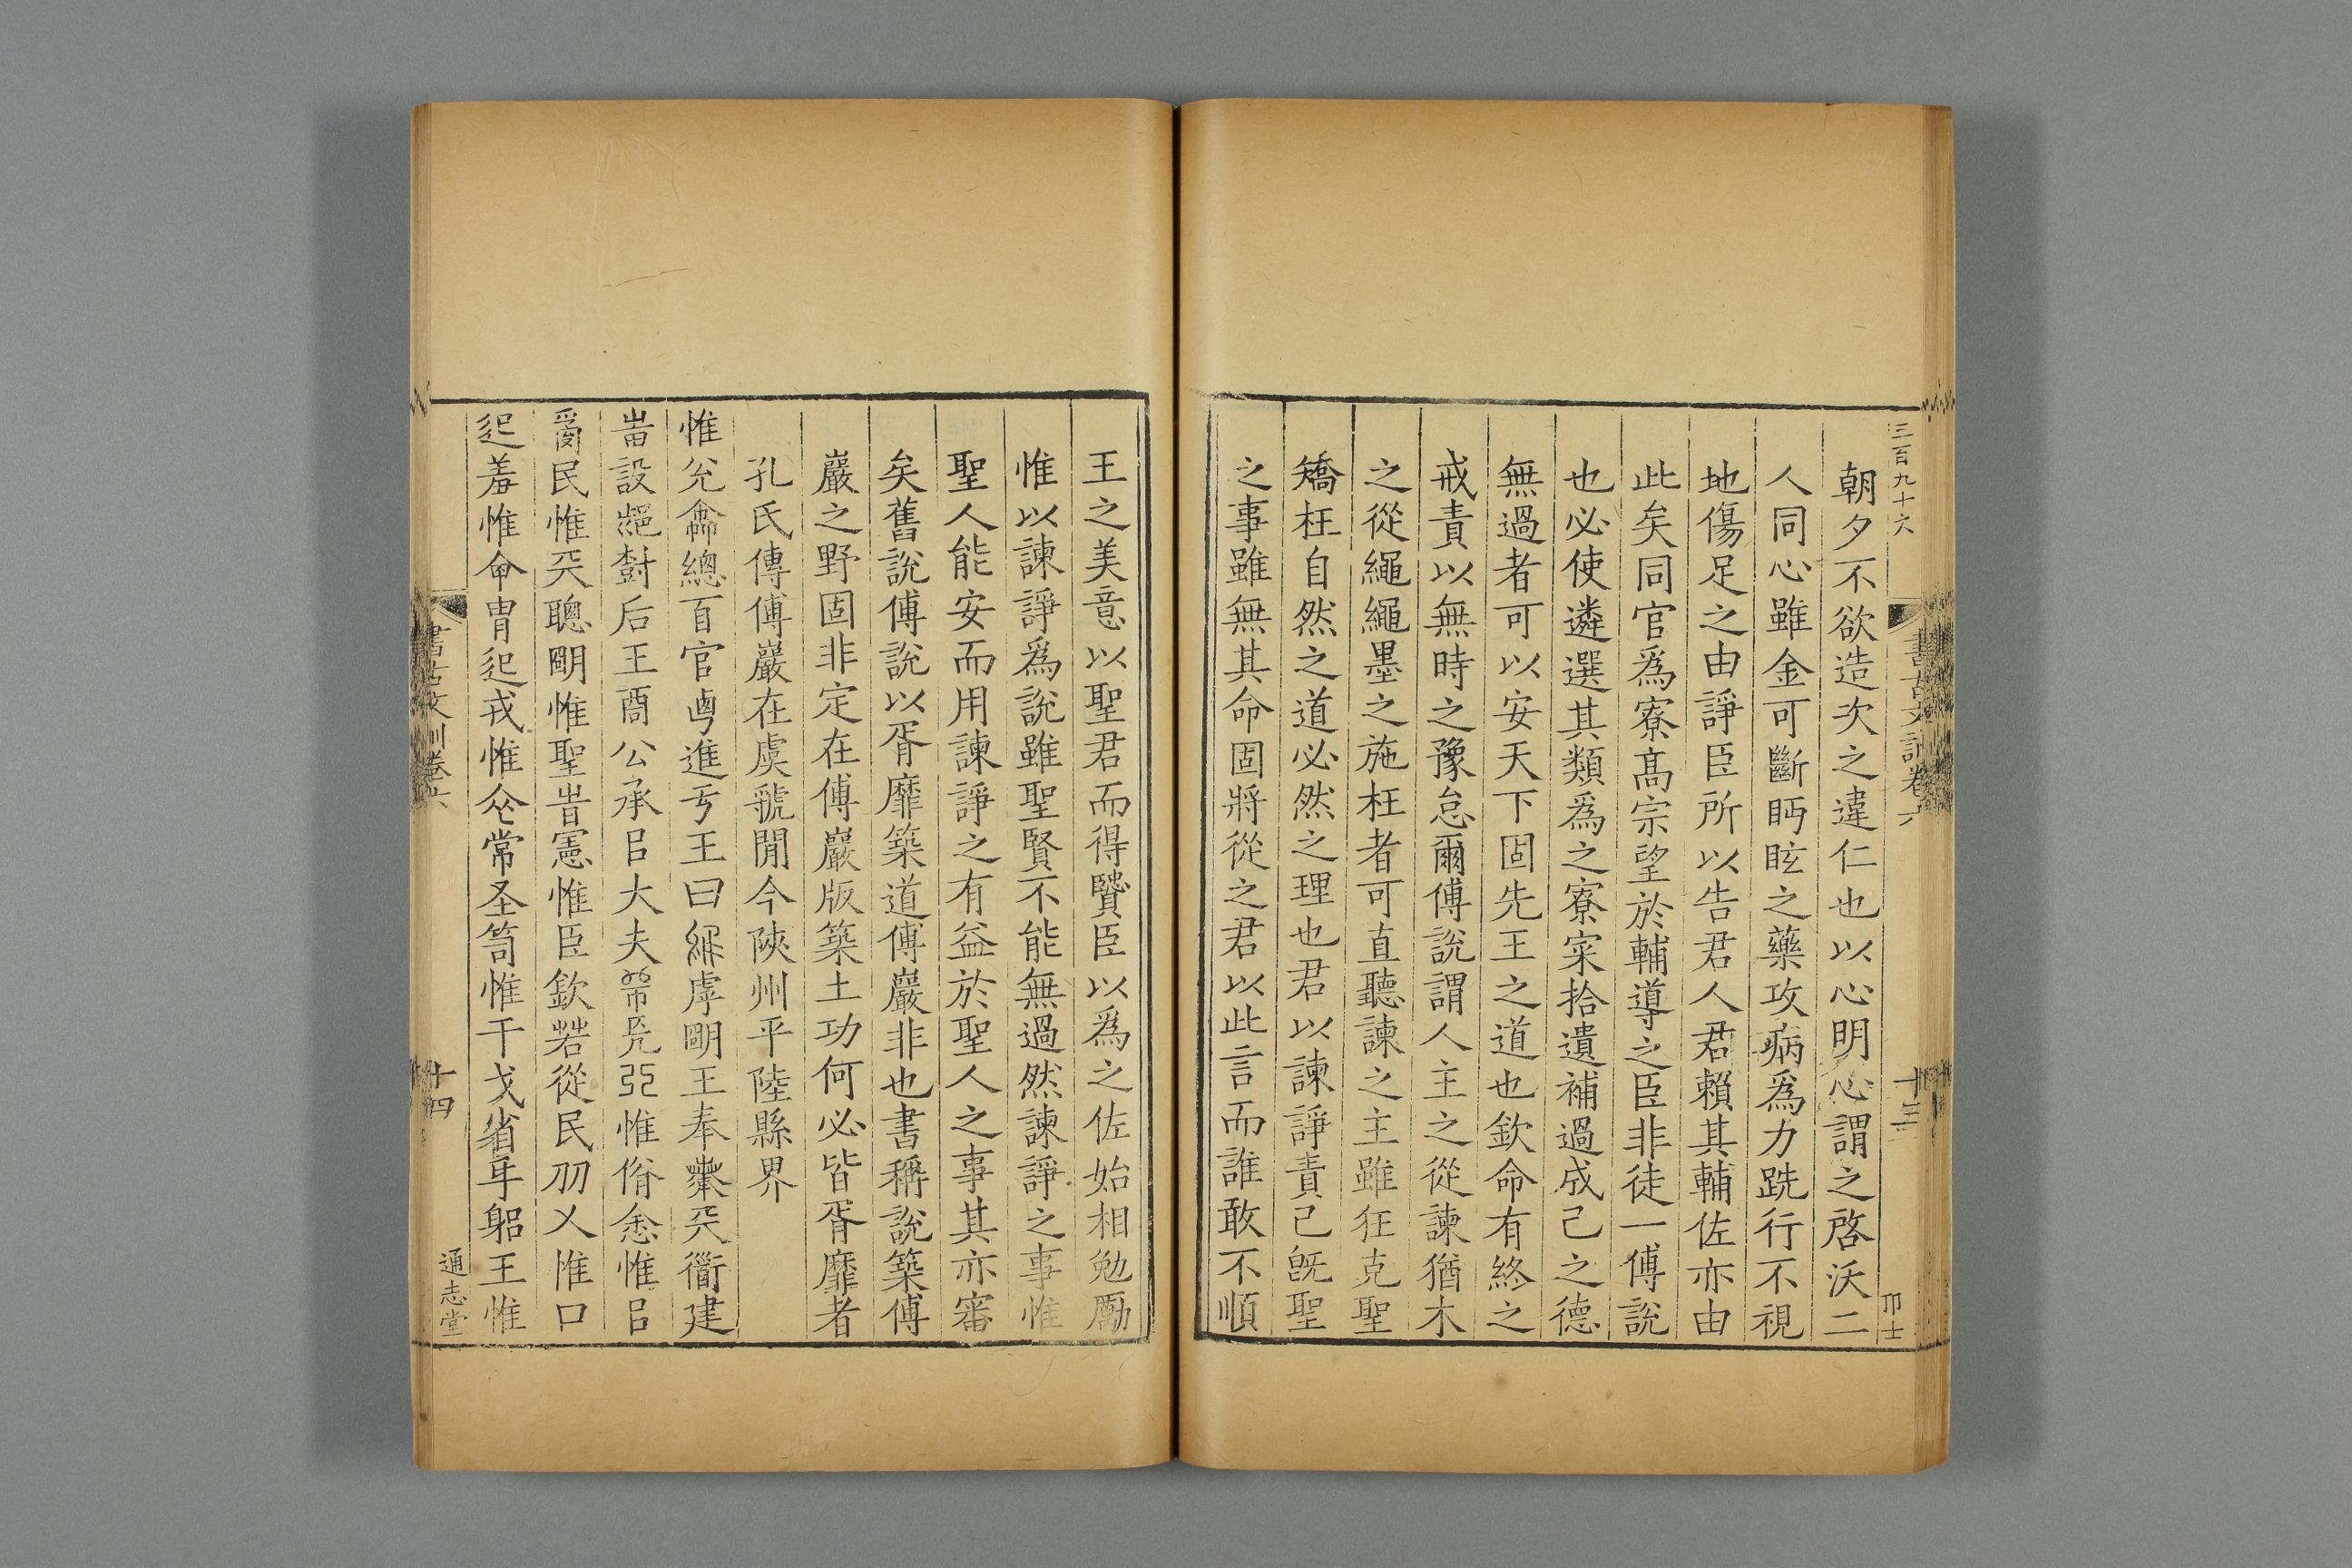 三百九十六
書古文訓卷六
十三
朝夕不欲造次之違仁也以心明心謂之啓沃二
人同心雖金可斷眄眩之藥攻病爲力跣行不視
地傷足之由諍臣所以告君人君賴其輔佐亦由
此矣同官爲寮髙宗望於輔導之臣非徒一傅說
也必使遴選其類爲之寮寀拾遺補過成己之德
無過者可以安天下固先王之道也欽命有終之
戒責以無時之豫怠爾傅說謂人主之從諫猶木
之從繩繩墨之施枉者可直聽諫之主雖狂克聖
矯枉自然之道必然之理也君以諫諍責己旣聖
之事雖無其命固將從之君以此言而誰敢不順
王之美意以聖君而得賢臣以爲之佐始相勉勵
惟以諫諍爲說雖聖賢不能無過然諫諍之事惟
聖人能安而用諫諍之有益於聖人之事其亦審
矣舊說傅說以胥靡築道傅巖非也書稱說築傅
巖之野固非定在傅巖版築土功何必皆胥靡者
孔氏傳傅巖在虞虢閒今陝州平陸縣界
惟兊龠總百官𠧟進亏王曰繇虖朙王奉𦱤兲衟建
𡴀設𨛜𡭊后王商公承㠯大夫𠂤𠒎亞惟脩悆惟㠯
𤔔民惟兲聰朙惟聖旹憲惟臣欽若從民刅乂惟口
起羞惟命胄起戎惟仌常圣笥惟干戈省𠂤躳王惟
書古文訓卷六
十四
通志堂